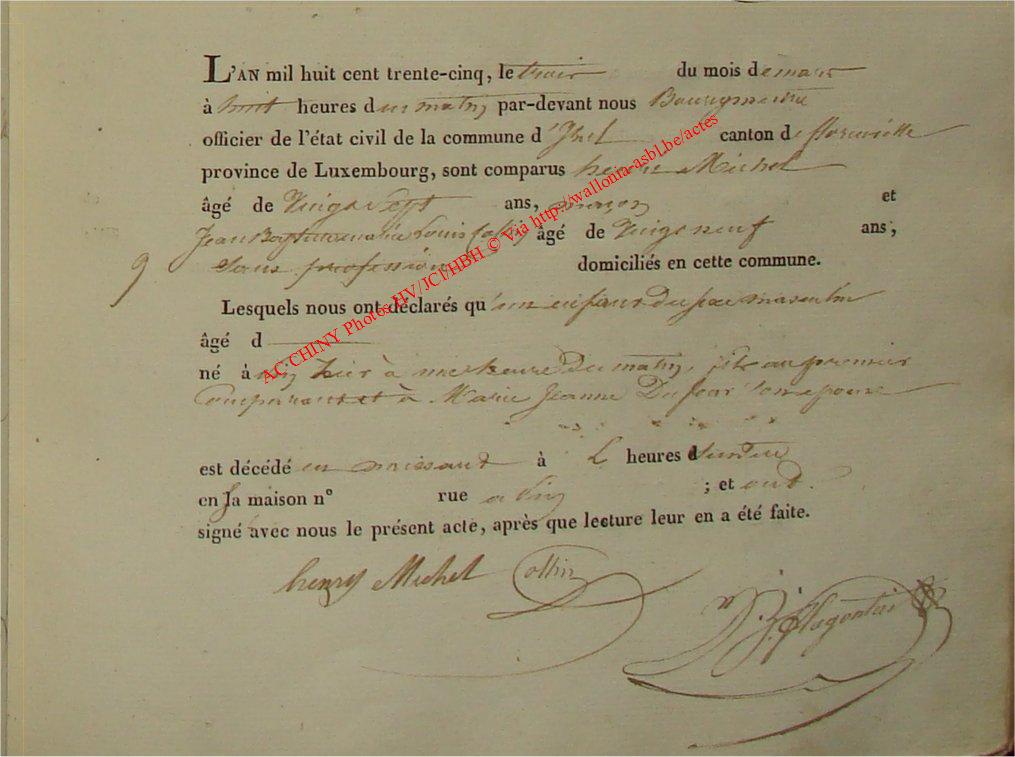 L'AN mil huit cent trente-cinq, le trois du mois de mars
à huit heures du matin par-devant nous Bourgmestre
officier de l'état civil de la commune d'Izel canton de florenville
province de Luxembourg, sont comparus henry Michel
âgé de Vingt Sept ans, maçon et
Jean Baptiste marie Louis Collin âgé de Vingt neuf ans,
9 Sans profession domiciliés en cette commune.
Lesquels nous ont déclarés qu'un enfant du sexe masculin
âgé d
né à hier à une heure du matin, fils au premier
Comparant et à Marie Jeanne Dufour son epouse
est décédé en naissant à heures
en sa maison n° rue a ; et ont
signé avec nous le présent acte, après que lecture leur en a été faite.
henry Michel Collin
AC CHINY Photos HV/JCI/HBH © Via http://wallonia-asbl.be/actes